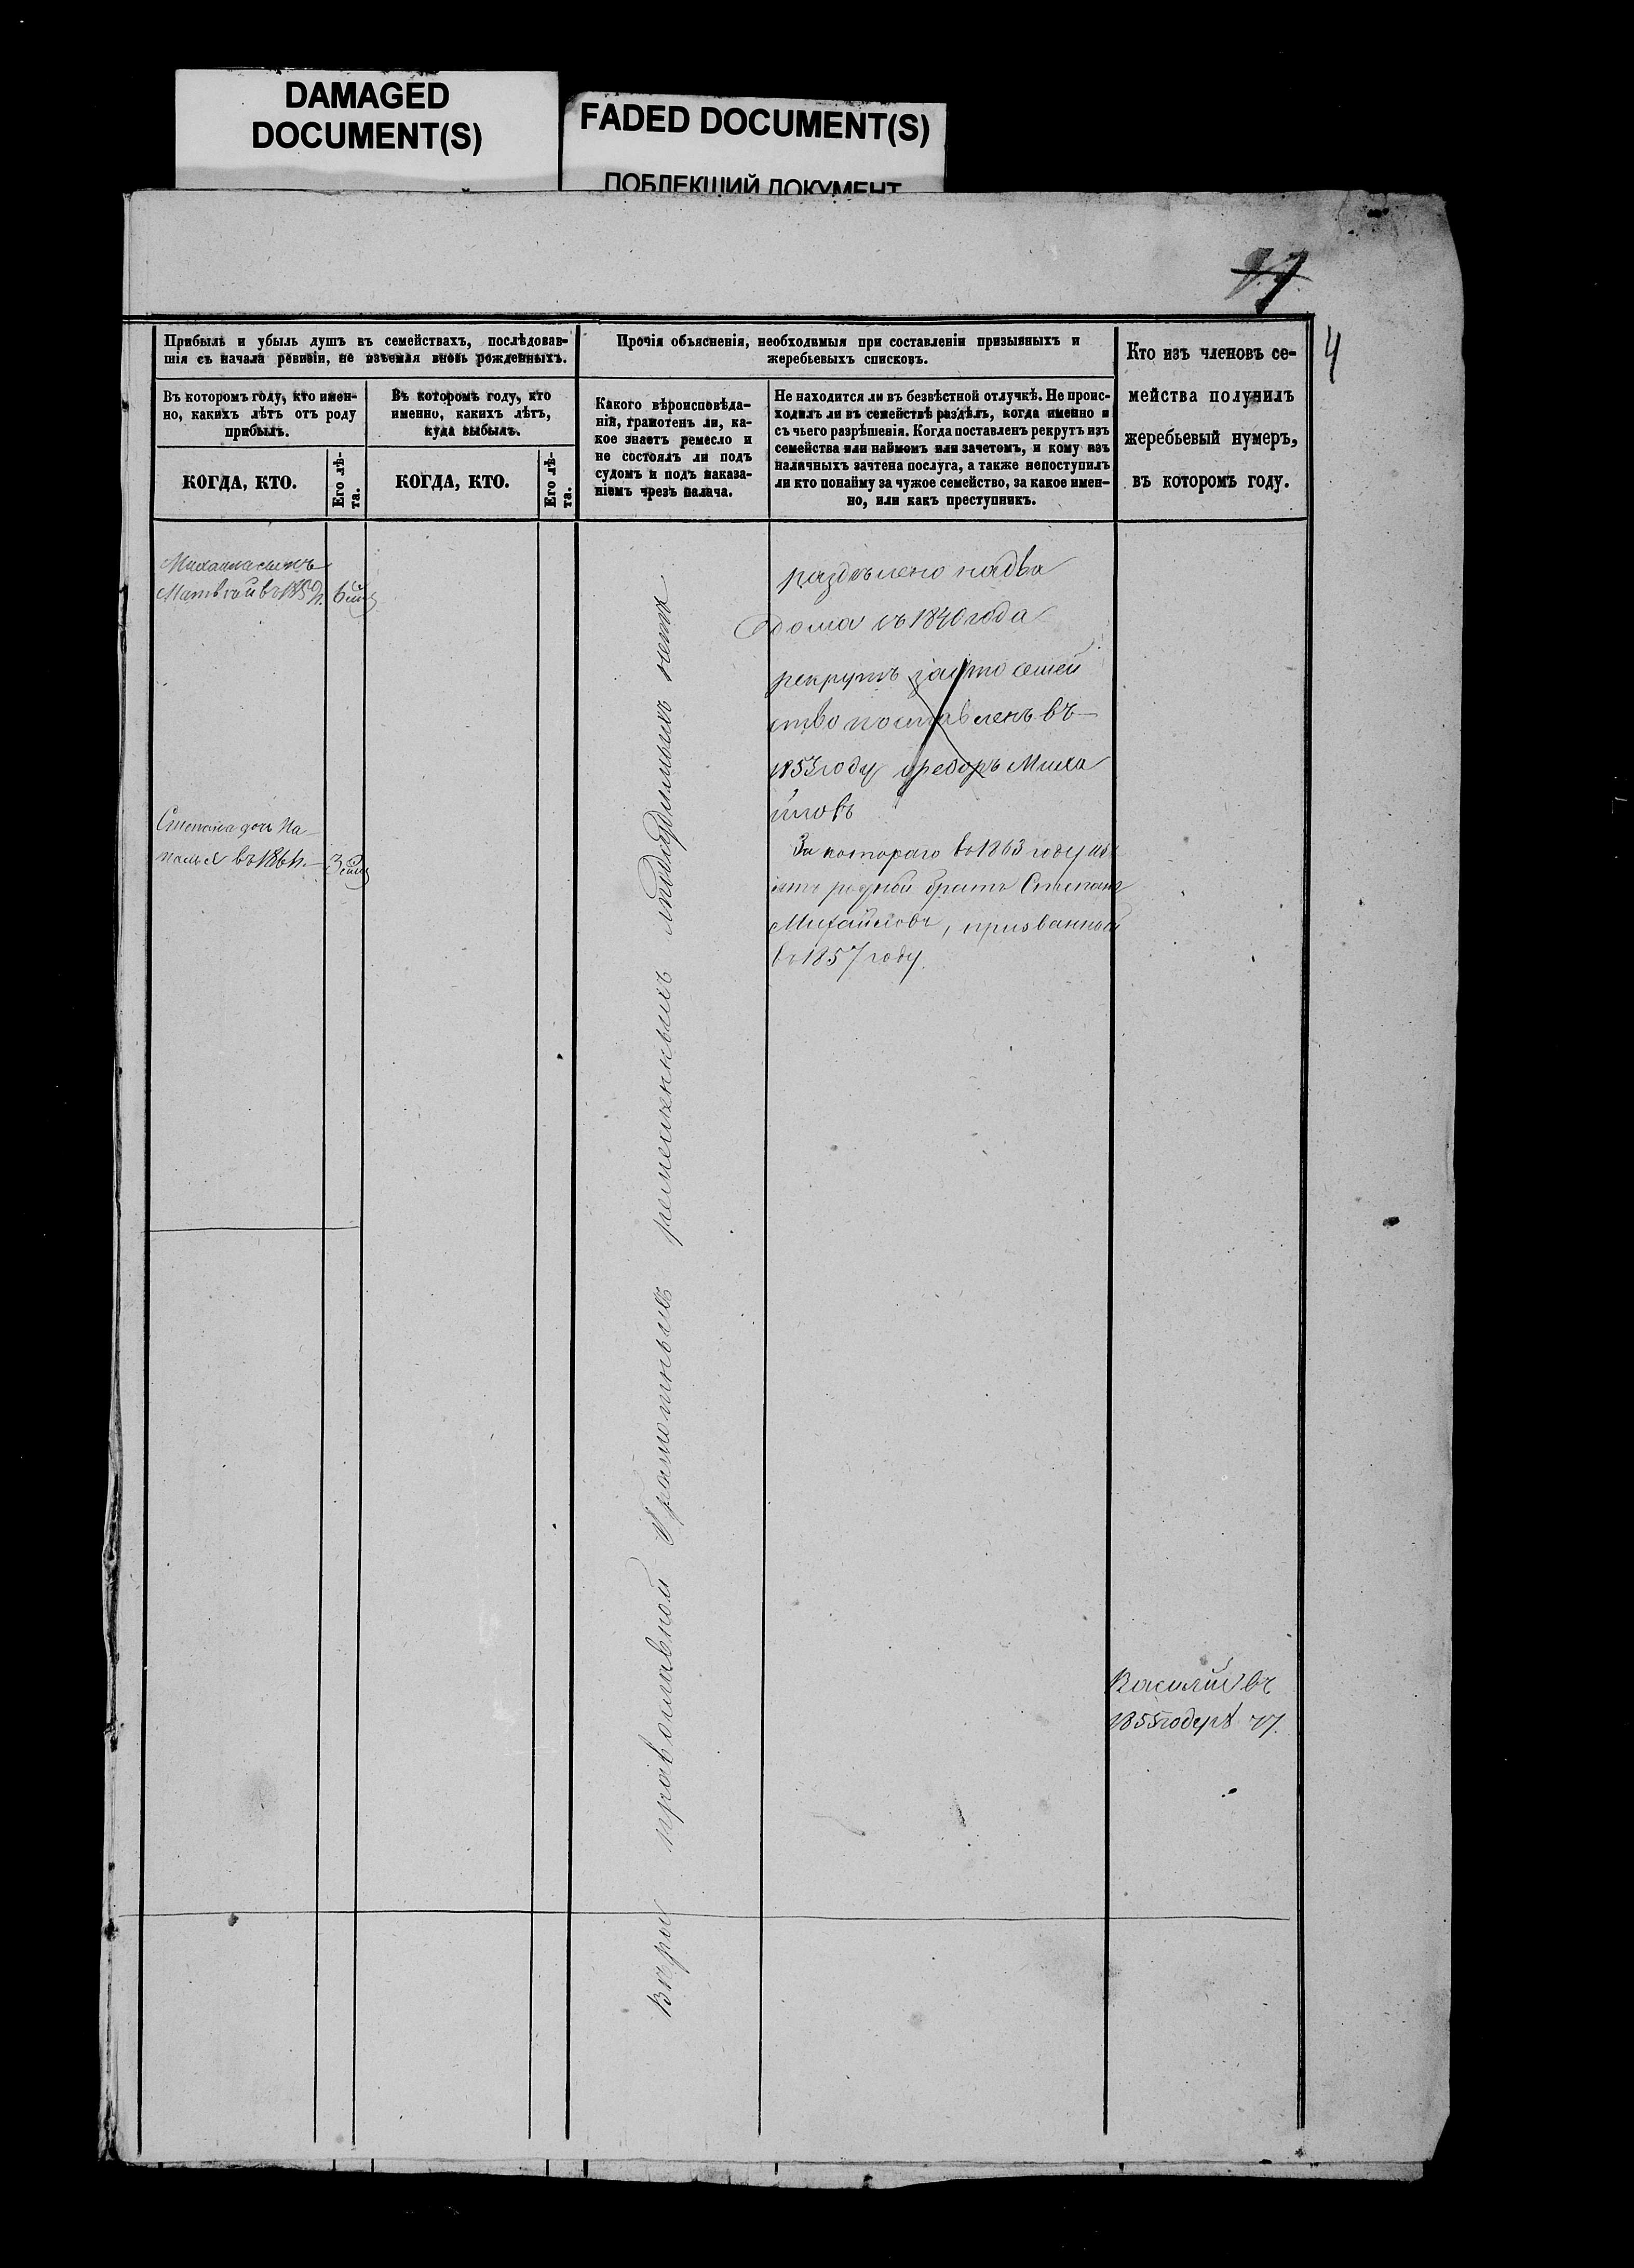 DAMAGED
DOCUMENT(S)
FADED DOCUMENT(S)
ПОБЛЕКШИЙ ДОКУМЕНТ
4
Прибыль и убыль душъ въ семействахъ, послѣдовав-
шія съ начала ревизіи, не изъемля вновь рожденныхъ.
Въ которомъ году, кто имен-
но, какихъ лѣтъ отъ роду
прибылъ.
Въ которомъ году, кто
именно, какихъ лѣтъ,
куда выбылъ.
КОГДА, КТО.
Его лѣ-
та.
КОГДА, КТО.
Его лѣ-
та.
Прочія объясненія, необходимыя при составленіи призывныхъ и
жеребьевыхъ списковъ.
Какого вѣроисповѣда-
ній, грамотенъ ли, ка-
кое знаетъ ремесло и
не состоялъ ли подъ
судомъ и подъ наказа-
ніемъ чрезъ палача.
Не находится ли въ безвѣстной отлучкѣ. Не проис-
ходилъ ли въ семействѣ раздѣлъ, когда именно и
съ чьего разрѣшенія. Когда поставленъ рекрутъ изъ
семейства или наймомъ или зачетомъ, и кому изъ
наличныхъ зачтена послуга, а также непоступилъ
ли кто понайму за чужое семейство, за какое имен-
но, или какъ преступникъ.
Кто изъ членовъ се-
мейства получилъ
жеребьевый нумеръ,
въ которомъ году.
Михаила сынъ
Матвѣй въ
Степана дочь На
талья въ 1864 г.
Вѣры православной Грамотныхъ ремесленныхъ нетъ
раздѣлено надва
дома съ 1840 года
рекрутъ за это семей
ство поставленъ въ
1853 году Федоръ Миха
йловъ
За котораго въ 1863 году
родной братъ Степанъ
Михайловъ, призванный
въ 1857 году
Василій въ
1855 году № 77.